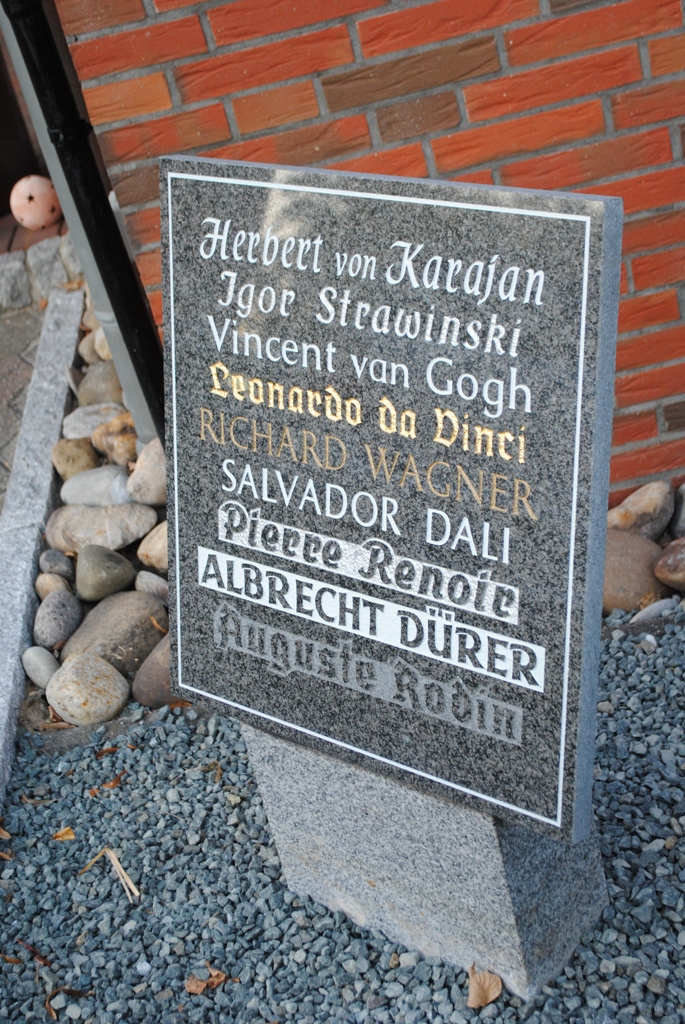 Herbert von Karajan
Igor Strawinski
Vincent van Gogh
Leonardo da Vinci
RICHARD WAGNER
SALVADOR DALI
Pierre Renoir
ALBRECHT DÜRER
Auguste Rodin